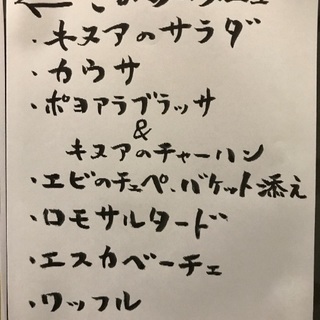 ・キヌアのサラダ
・カウサ
・ポヨアラブラッサ
&
キヌアのチャーハン
・エビのチュペ、バケット添え
・ロモサルタード
・エスカベーチェ
・ワッフル